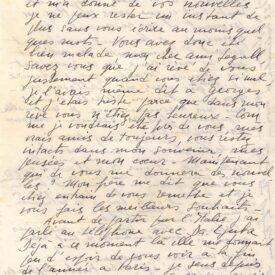 et m'a donné de vos nouvelles
je ne peux rester un instant de
plus sans vous écrire au moins quel
ques mots. Vous avez donc été
bien malade mon cher ami
Savez vous que j'ai rêvé de vous
justement quand vous étiez si mal
je l'avais même dit à Georges
et j'étais triste parce que dans mon
rêve vous n'étiez pas heureux. Com
me je voudrais être près de vous mes
vrais amis de toujours, vous restez
intacts dans mon souvenir, mes
pensées et mon cœur. Maintenant
qui de vous me donnera des nouvel
les? Mon frère me dit que vous
êtes en train de vous remettre et je
vous fais les meilleurs souhaits
Avant de partir pour l'Italie j'ai
parlé au téléphone avec
Déjà à ce moment là elle me donnait
peu d'espoir de vous voir à la fin
de l'année à Paris. je suis depuis